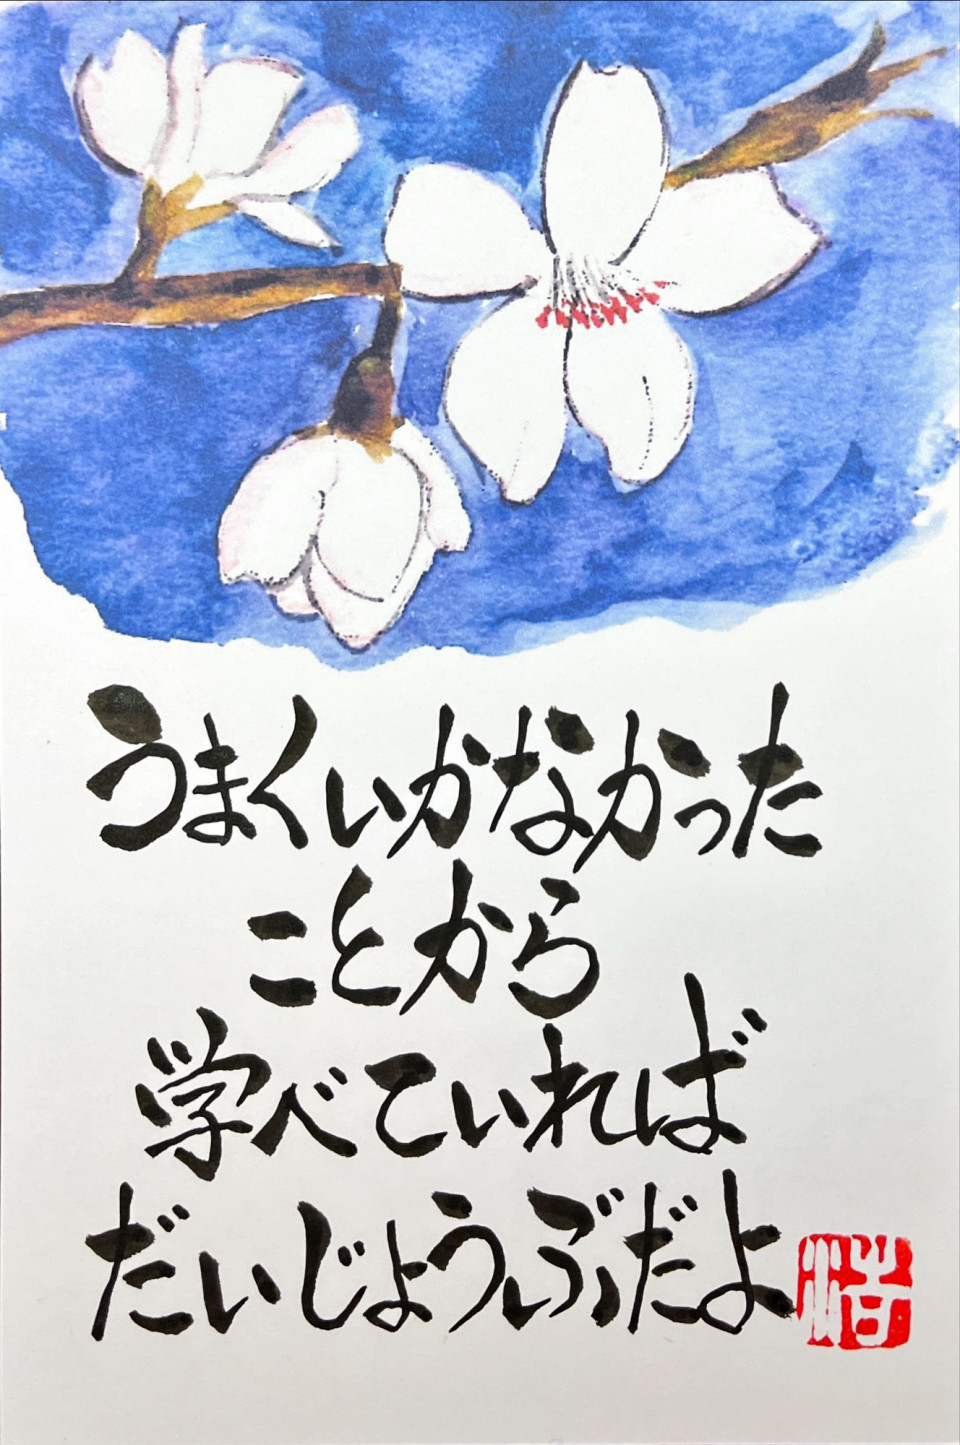 うまくいかなかった
ことから
学べていれば
だいじょうぶだよ